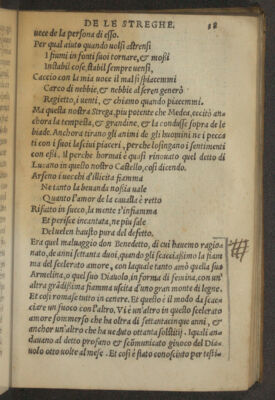 DE LE STREGHE. 58
uece de la persona di esso.
Per qual aiuto quando uolsi astrensi
I fiumi in fonti suoi tornare, & mossi
Instabil cose, stabil sempre uensi,
Caccio con la mia uoce il mal si piacemmi
Carco di nebbie, & nebbie al seren genero
Regietto, i uenti, & chiamo quando piacemmi.
Ma quella nostra Strega, piu potente che Medea, eccitò an
chora la tempesta, & grandine, & la condusse sopra de le
biade. Anchora tirano gli animi de gli huomini ne i pecca
ti con i suoi lasciui piaceri, perche losingano i sentimenti
con essi, il perche hormai è quasi rinouato quel detto di
Lucano in questo nostro Castello, cosi dicendo.
Arseno i uecchi d'illicita fiamma
Ne tanto la beuanda nossia uale
Quanto l'amor de la caualla è retto
Rifatto in succo, la mente s'infiamma
Et perisce incantata, ne piu sale
Del uelen hausto pura del defetto.
Era quel maluaggio don Benedetto, di cui hauemo ragio
nato, de anni settanta duoi, quando gli scacciassimo la fiam
ma del scelerato amore, con laquale tanto amò quella sua
Armelina, o quel suo Diauolo, in forma di femina, con un'
altra grãdissima fiamma uscita d'uno gran monte di legne.
Et cosi romase tutto in cenere. Et questo è il modo da scac
ciare un fuoco con l'altro. Vi è un'altro in questo scelerato
amore sommerso che ha oltra di settantacinque anni, &
anchor un'altro che ha ueduto ottanta solstitij. I quali an
dauano al detto profano & scõmunicato giuoco del Dia
uolo otto uolte al mese. Et cosi è stato conosciuto per testi-